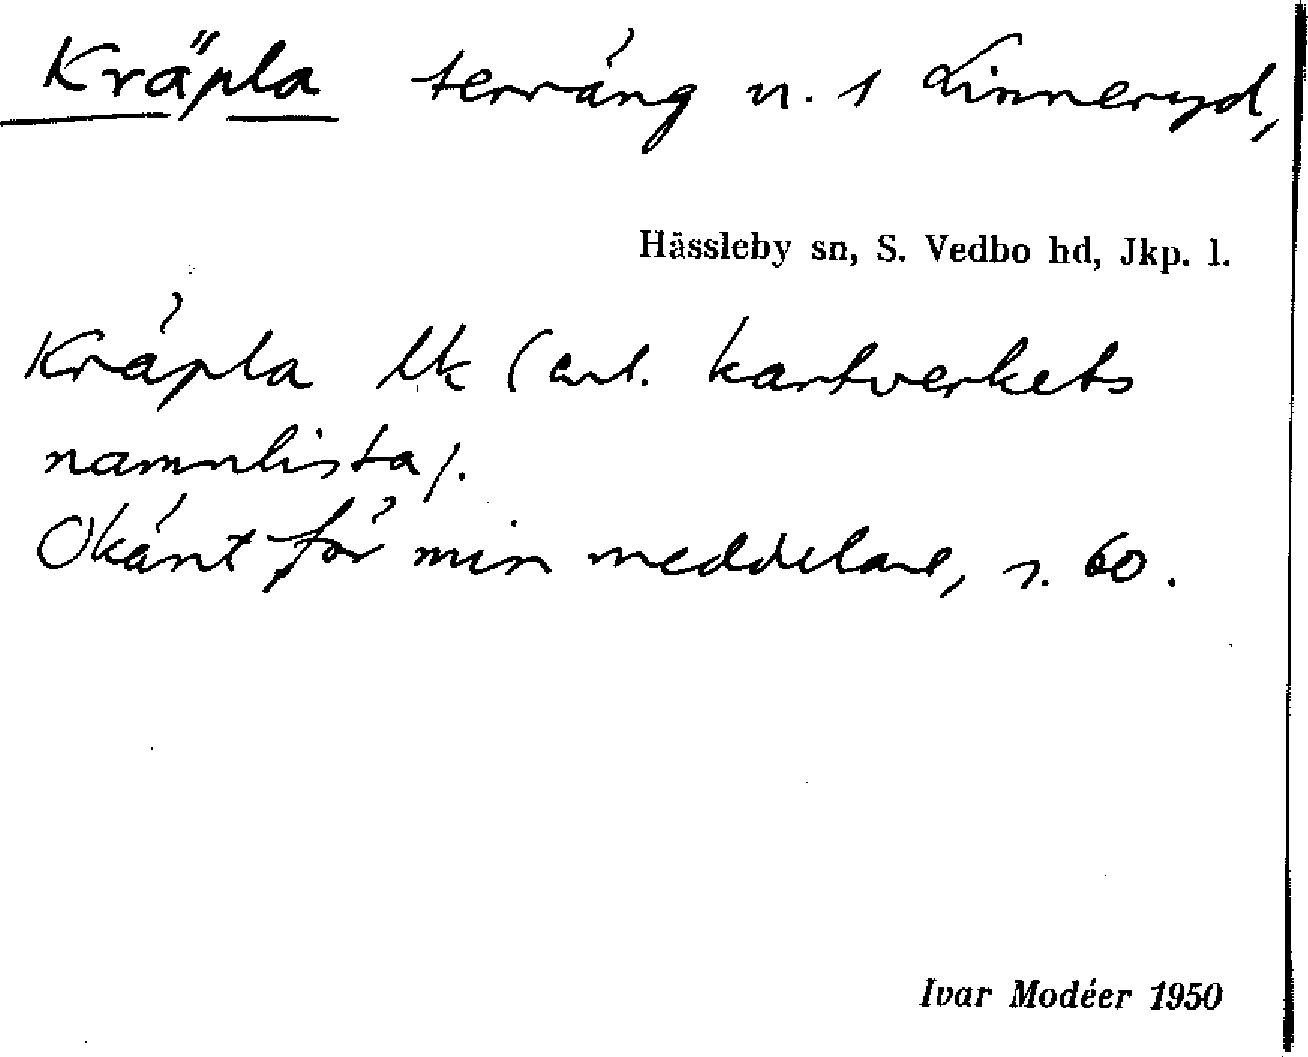 Kräpla terräng n. 1 Linneryd,
Hässleby sn, S. Vedbo hd, Jkp. l.
Kräpla lk (enl. kartverkets
namnlista).
Okänt för min meddelare, s. 60.
Ivar Modéer 1950